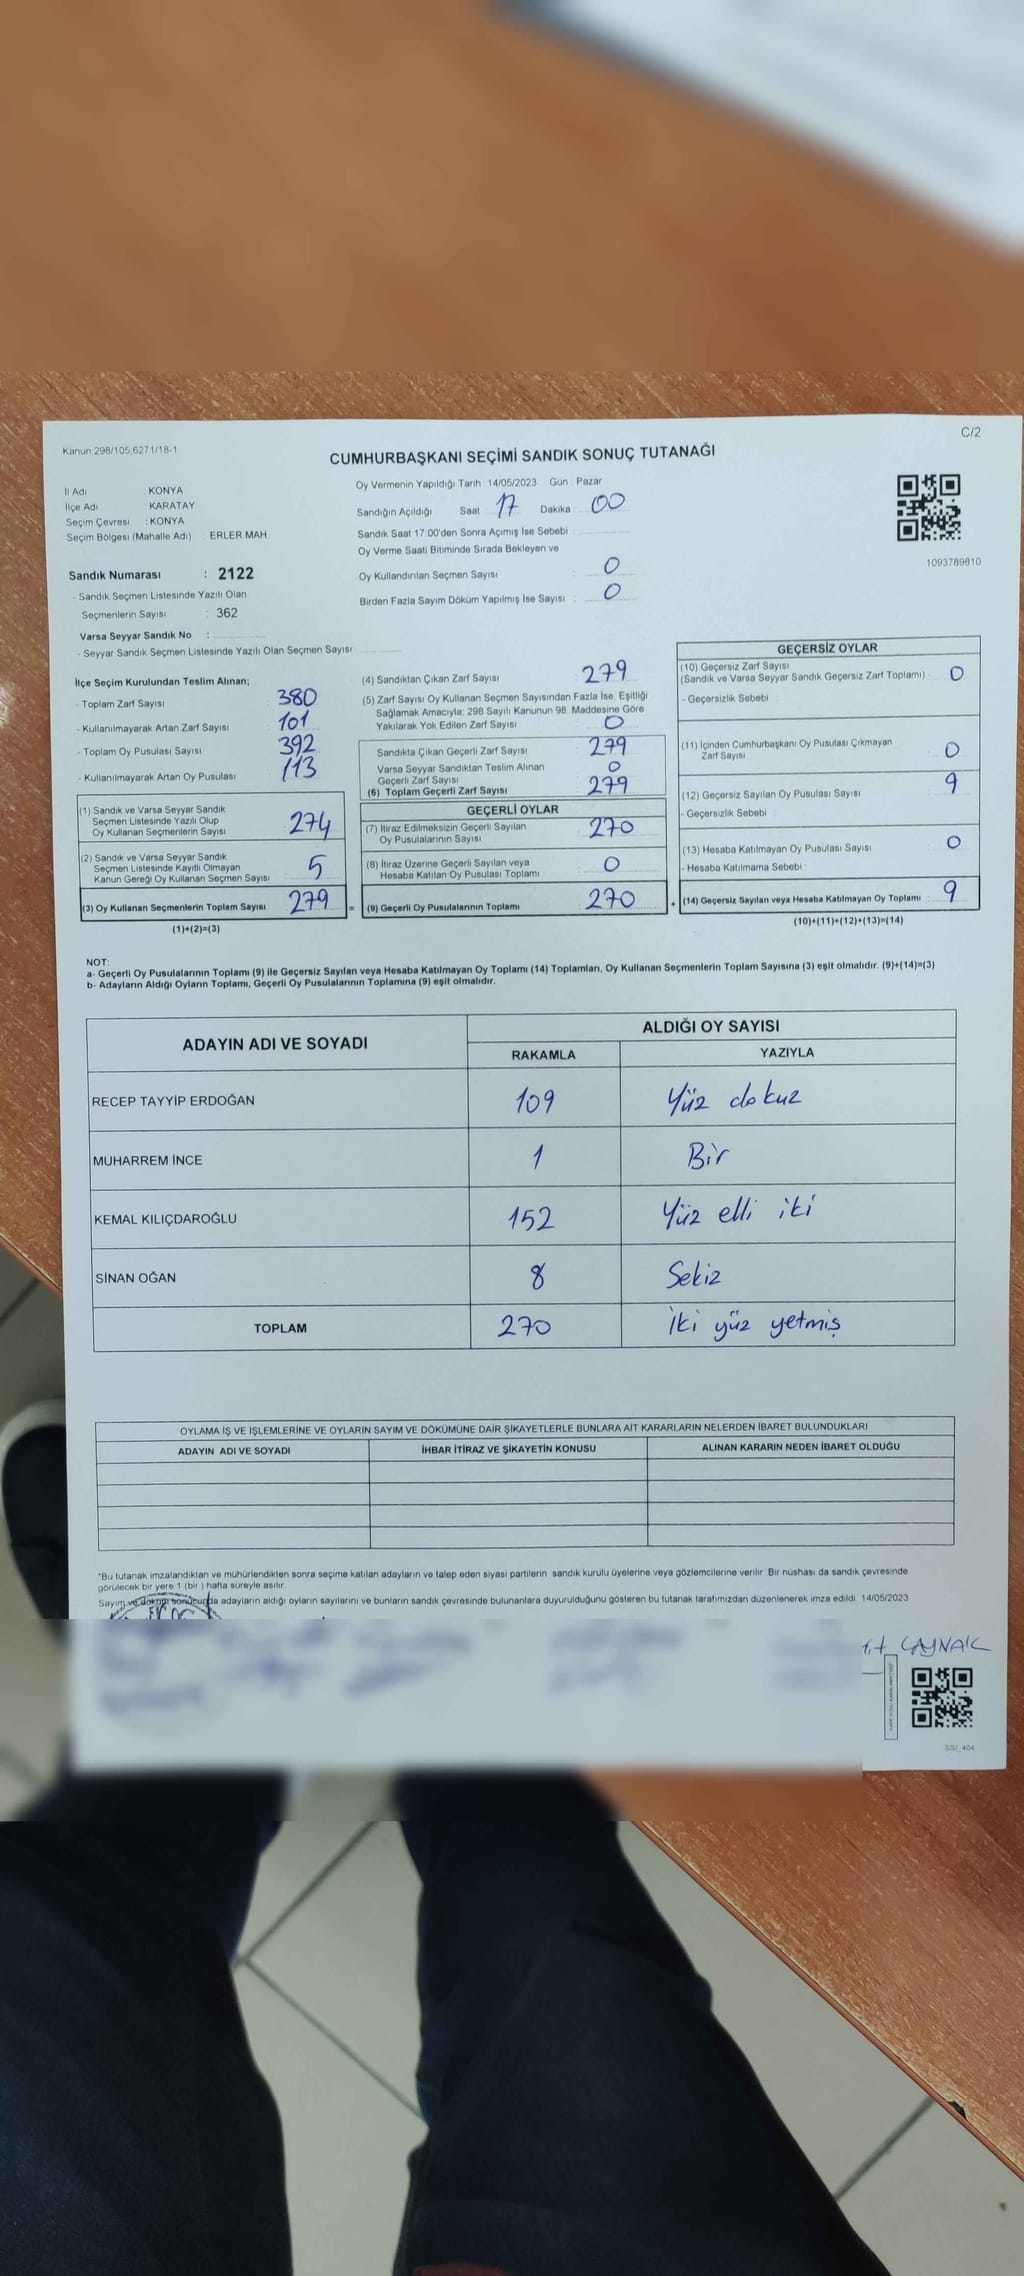 Kanun:298/105;6271/18-1
C/2
CUMHURBAŞKANI SEÇİMİ SANDIK SONUÇ TUTANAĞI
İl Adı KONYA
İlçe Adı KARATAY
Seçim Çevresi : KONYA
Seçim Bölgesi (Mahalle Adı) : ERLER MAH.
Oy Vermenin Yapıldığı Tarih 14/05/2023 Gün : Pazar
Sandığın Açıldığı Saat 17 Dakika 00
Sandık Saat 17:00'den Sonra Açımış İse Sebebi :
Oy Verme Saati Bitiminde Sırada Bekleyen ve
Oy Kullandırılan Seçmen Sayısı : 0
Birden Fazla Sayım Döküm Yapılmış İse Sayısı : 0
1093789810
Sandık Numarası : 2122
- Sandık Seçmen Listesinde Yazılı Olan
Seçmenlerin Sayısı : 362
Varsa Seyyar Sandık No :
- Seyyar Sandık Seçmen Listesinde Yazılı Olan Seçmen Sayısı
İlçe Seçim Kurulundan Teslim Alınan;
- Toplam Zarf Sayısı : 380
- Kullanılmayarak Artan Zarf Sayısı : 101
- Toplam Oy Pusulası Sayısı : 392
- Kullanılmayarak Artan Oy Pusulası : 113
(1) Sandık ve Varsa Seyyar Sandık
Seçmen Listesinde Yazılı Olup
Oy Kullanan Seçmenlerin Sayısı : 274
(2) Sandık ve Varsa Seyyar Sandık
Seçmen Listesinde Kayıtlı Olmayan
Kanun Gereği Oy Kullanan Seçmen Sayısı : 5
(3) Oy Kullanan Seçmenlerin Toplam Sayısı : 279 =
(1)+(2)=(3)
(4) Sandıktan Çıkan Zarf Sayısı : 279
(5) Zarf Sayısı Oy Kullanan Seçmen Sayısından Fazla İse, Eşitliği
Sağlamak Amacıyla; 298 Sayılı Kanunun 98. Maddesine Göre
Yakılarak Yok Edilen Zarf Sayısı : 0
Sandıkta Çıkan Geçerli Zarf Sayısı : 279
Varsa Seyyar Sandıktan Teslim Alınan
Geçerli Zarf Sayısı : 0
(6) Toplam Geçerli Zarf Sayısı : 279
GEÇERLİ OYLAR
(7) İtiraz Edilmeksizin Geçerli Sayılan
Oy Pusulalarının Sayısı : 270
(8) İtiraz Üzerine Geçerli Sayılan veya
Hesaba Katılan Oy Pusulası Toplamı : 0
(9) Geçerli Oy Pusulalarının Toplamı : 270 +
GEÇERSİZ OYLAR
(10) Geçersiz Zarf Sayısı
(Sandık ve Varsa Seyyar Sandık Geçersiz Zarf Toplamı) : 0
- Geçersizlik Sebebi :
(11) İçinden Cumhurbaşkanı Oy Pusulası Çıkmayan
Zarf Sayısı : 0
(12) Geçersiz Sayılan Oy Pusulası Sayısı : 9
- Geçersizlik Sebebi :
(13) Hesaba Katılmayan Oy Pusulası Sayısı : 0
- Hesaba Katılmama Sebebi :
(14) Geçersiz Sayılan veya Hesaba Katılmayan Oy Toplamı : 9
(10)+(11)+(12)+(13)=(14)
NOT:
a- Geçerli Oy Pusulalarının Toplamı (9) ile Geçersiz Sayılan veya Hesaba Katılmayan Oy Toplamı (14) Toplamları, Oy Kullanan Seçmenlerin Toplam Sayısına (3) eşit olmalıdır. (9)+(14)=(3)
b- Adayların Aldığı Oyların Toplamı, Geçerli Oy Pusulalarının Toplamına (9) eşit olmalıdır.
ADAYIN ADI VE SOYADI ALDIĞI OY SAYISI
RAKAMLA YAZIYLA
RECEP TAYYİP ERDOĞAN 109 Yüz dokuz
MUHARREM İNCE 1 Bir
KEMAL KILIÇDAROĞLU 152 Yüz elli iki
SİNAN OĞAN 8 Sekiz
TOPLAM 270 İki yüz yetmiş
OYLAMA İŞ VE İŞLEMLERİNE VE OYLARIN SAYIM VE DÖKÜMÜNE DAİR ŞİKAYETLERLE BUNLARA AİT KARARLARIN NELERDEN İBARET BULUNDUKLARI
ADAYIN ADI VE SOYADI İHBAR İTİRAZ VE ŞİKAYETİN KONUSU ALINAN KARARIN NEDEN İBARET OLDUĞU
*Bu tutanak imzalandıktan ve mühürlendikten sonra seçime katılan adayların ve talep eden siyasi partilerin sandık kurulu üyelerine veya gözlemcilerine verilir. Bir nüshası da sandık çevresinde
görülecek bir yere 1 (bir ) hafta süreyle asılır.
Sayım ve döküm sonucunda adayların aldığı oyların sayılarını ve bunların sandık çevresinde bulunanlara duyurulduğunu gösteren bu tutanak tarafımızdan düzenlenerek imza edildi. 14/05/2023
SSI_404